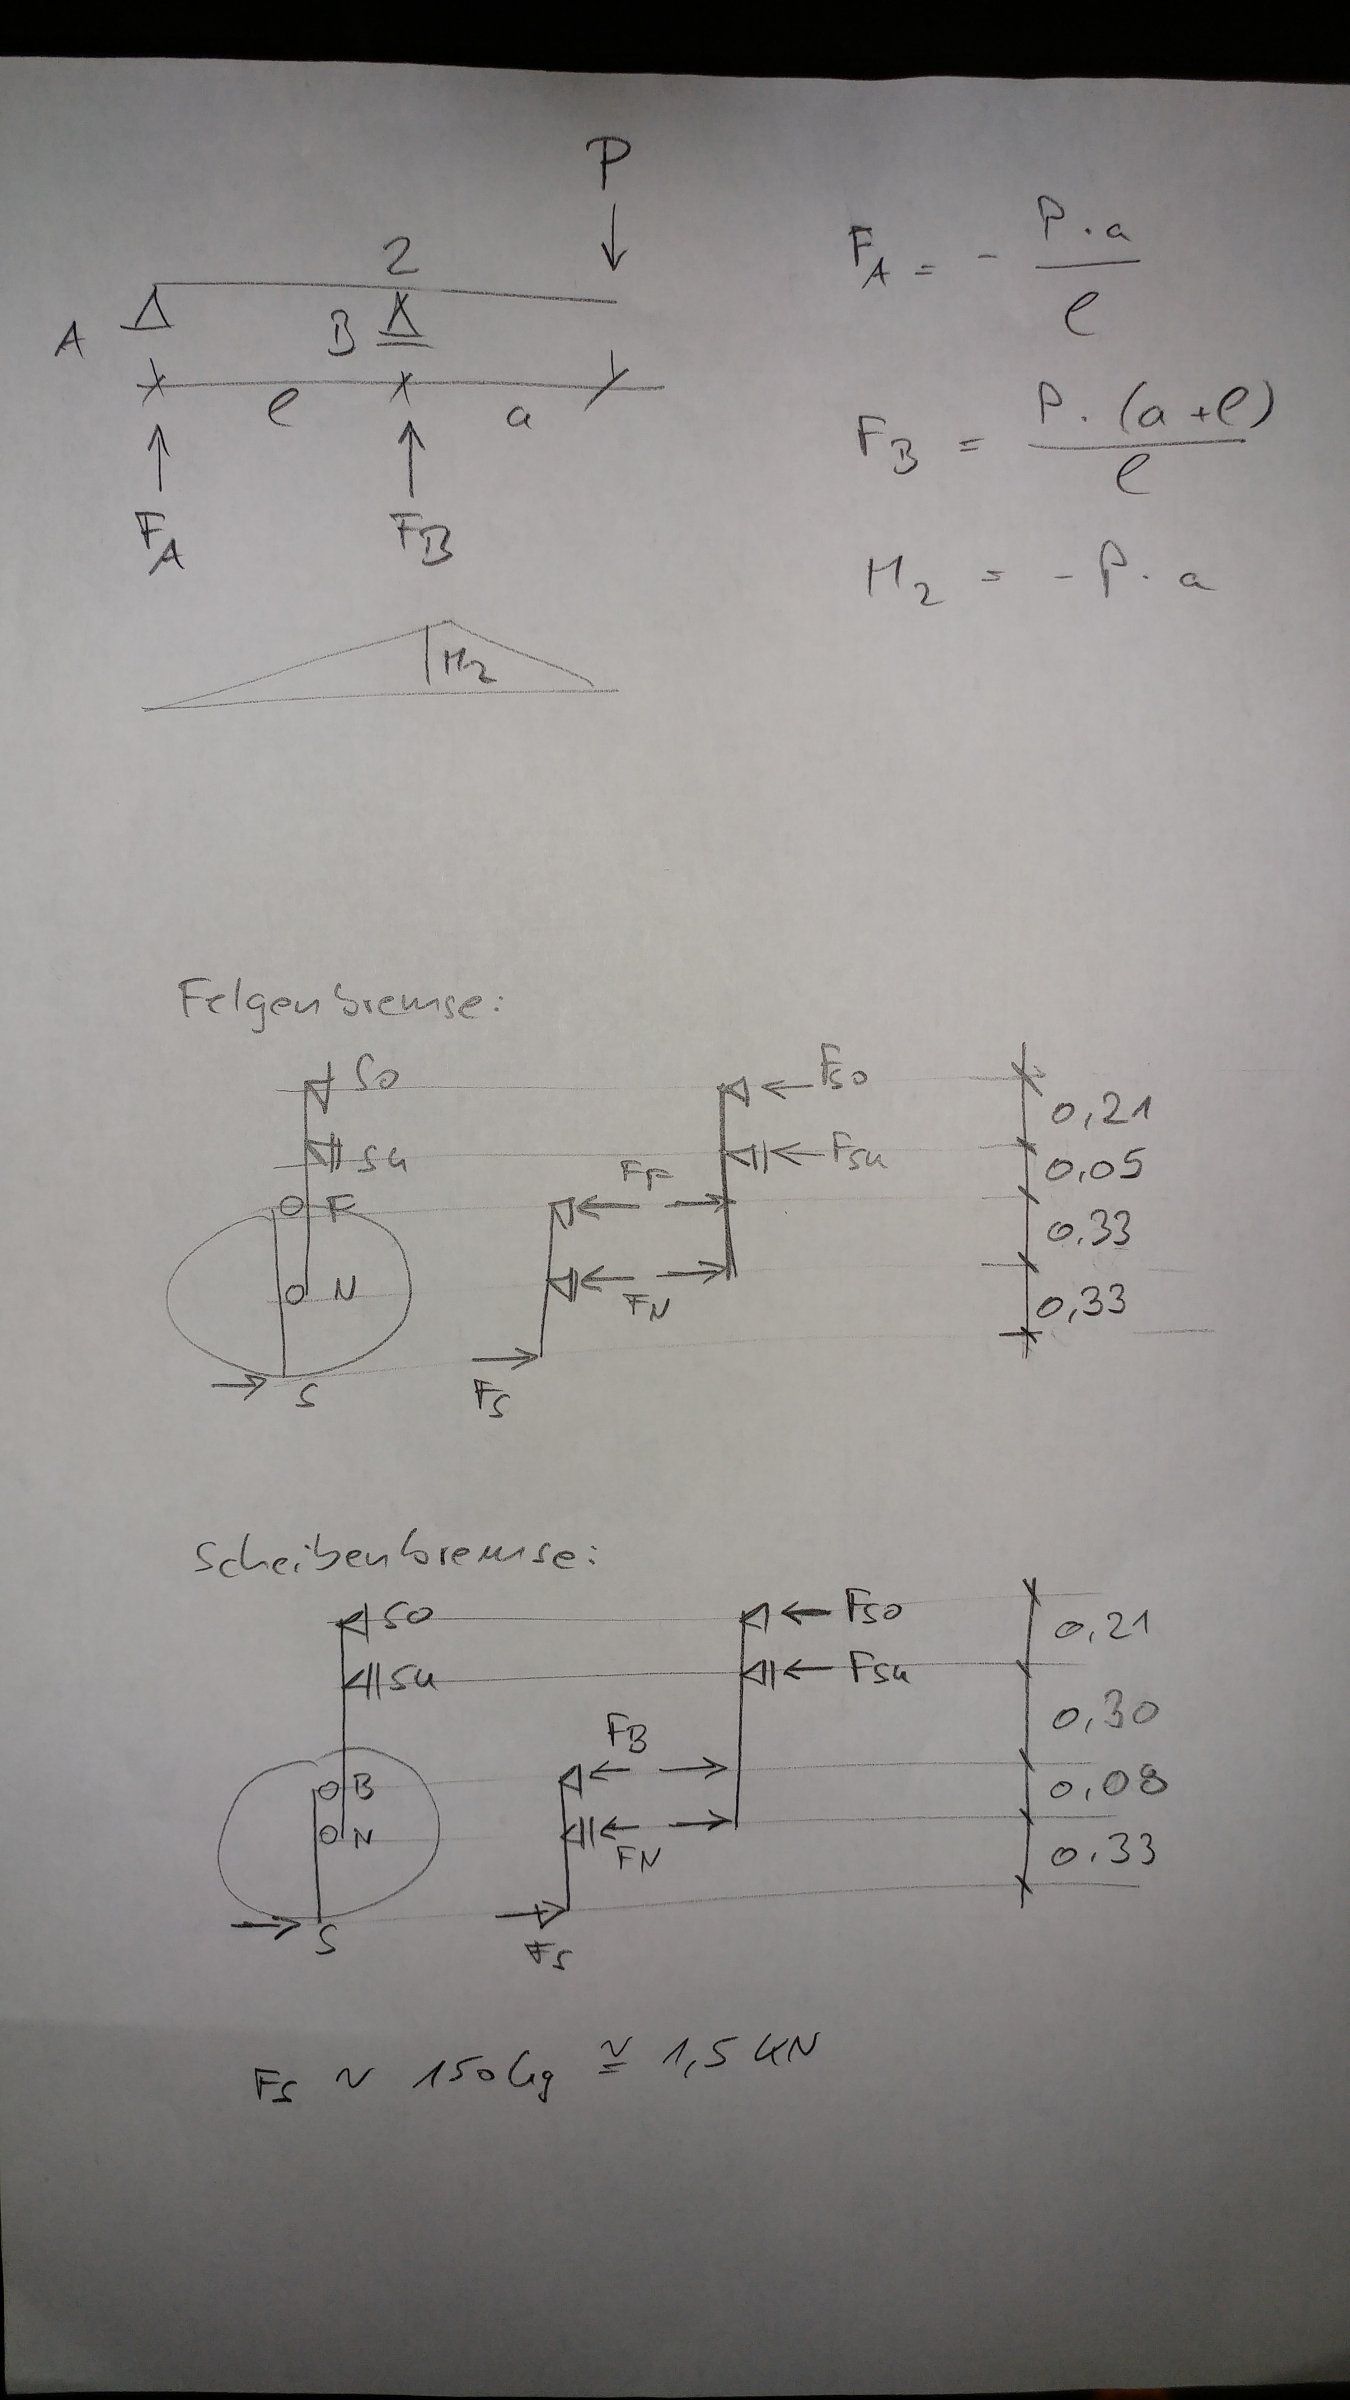 P
2
A
B
l
a
F_A
F_B
M_2
F_A = - P·a / l
F_B = P·(a+l) / l
M_2 = - P·a
Felgenbremse:
So
Su
F
N
S
F_F
F_N
F_S
F_So
F_Su
0,21
0,05
0,33
0,33
Scheibenbremse:
So
Su
B
N
S
F_B
F_N
F_S
F_So
F_Su
0,21
0,30
0,08
0,33
F_S ~ 150kg ≅ 1,5 kN